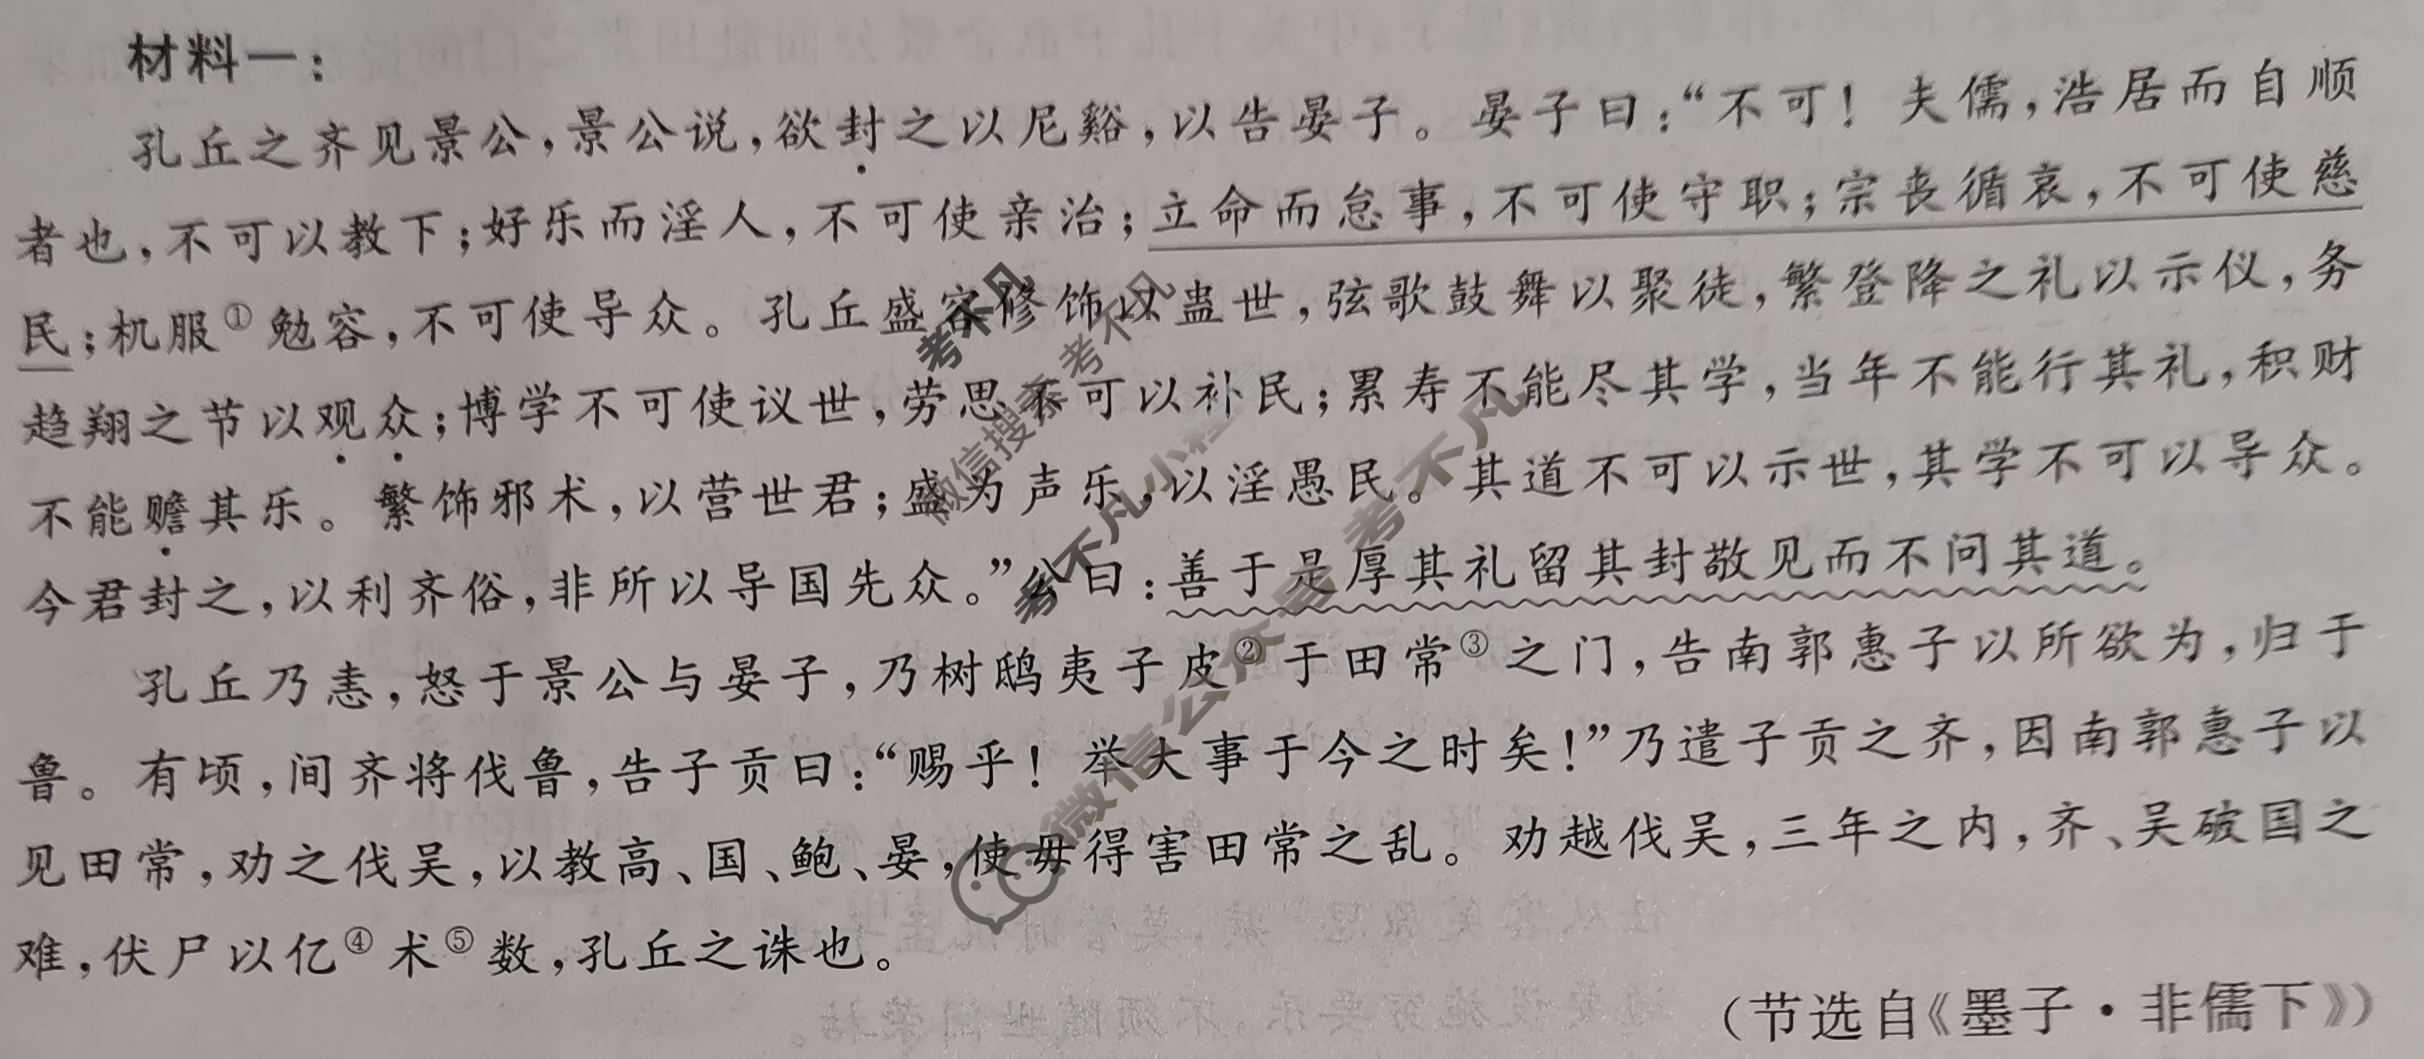 材料一：
孔丘之齐见景公，景公说，欲封之以尼谿，以告晏子。晏子曰：“不可！夫儒，浩居而自顺
者也，不可以教下；好乐而淫人，不可使亲治；立命而怠事，不可使守职；宗丧循哀，不可使慈
民；机服①勉容，不可使导众。孔丘盛容修饰以蛊世，弦歌鼓舞以聚徒，繁登降之礼以示仪，务
趋翔之节以观众；博学不可使议世，劳思不可以补民；累寿不能尽其学，当年不能行其礼，积财
不能赡其乐。繁饰邪术，以营世君；盛为声乐，以淫愚民。其道不可以示世，其学不可以导众。
今君封之，以利齐俗，非所以导国先众。”公曰：善于是厚其礼留其封敬见而不问其道。
孔丘乃恚，怒于景公与晏子，乃树鸱夷子皮②于田常③之门，告南郭惠子以所欲为，归于
鲁。有顷，间齐将伐鲁，告子贡曰：“赐乎！举大事于今之时矣！”乃遣子贡之齐，因南郭惠子以
见田常，劝之伐吴，以教高、国、鲍、晏，使毋得害田常之乱。劝越伐吴，三年之内，齐、吴破国之
难，伏尸以亿④术⑤数，孔丘之诛也。
（节选自《墨子·非儒下》）
考不凡
微信搜索考不凡
考不凡小程序
微信公众号 考不凡